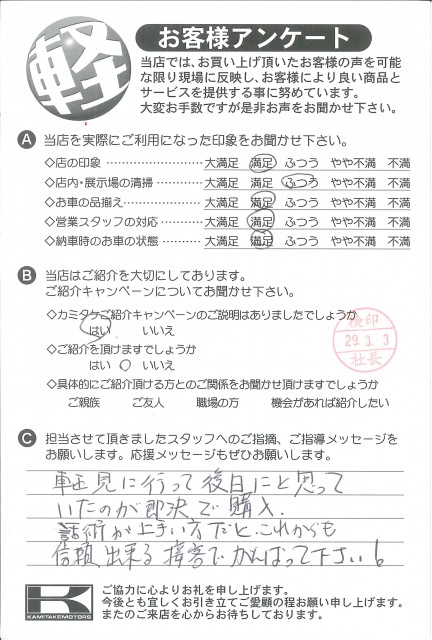 軽
お客様アンケート
当店では、お買い上げ頂いたお客様の声を可能
な限り現場に反映し、お客様により良い商品と
サービスを提供する事に努めています。
大変お手数ですが是非お声をお聞かせ下さい。
A 当店を実際にご利用になった印象をお聞かせ下さい。
◇店の印象 ………………… 大満足 満足 ふつう やや不満 不満
◇店内・展示場の清掃………… 大満足 満足 ふつう やや不満 不満
◇お車の品揃え……………… 大満足 満足 ふつう やや不満 不満
◇営業スタッフの対応………… 大満足 満足 ふつう やや不満 不満
◇納車時のお車の状態………… 大満足 満足 ふつう やや不満 不満
B 当店はご紹介を大切にしております。
ご紹介キャンペーンについてお聞かせ下さい。
◇カミタケご紹介キャンペーンのご説明はありましたでしょうか
はい いいえ
◇ご紹介を頂けますでしょうか
はい いいえ
◇具体的にご紹介頂ける方とのご関係をお聞かせ頂けますでしょうか
ご親族 ご友人 職場の方 機会があれば紹介したい
検印
29.3.3
社長
C 担当させて頂きましたスタッフへのご指摘、ご指導メッセージを
お願いします。応援メッセージもぜひお願いします。
軽見に行って後日にと思って
いたのが即決で購入.
話術が上手い方だと.これからも
信頼出来る接客でがんばって下さい!
K
KAMITAKEMOTORS
ご協力に心よりお礼を申し上げます。
今後とも宜しくお引き立てご愛顧の程お願い申し上げます。
またのご来店を心からお待ちしております。